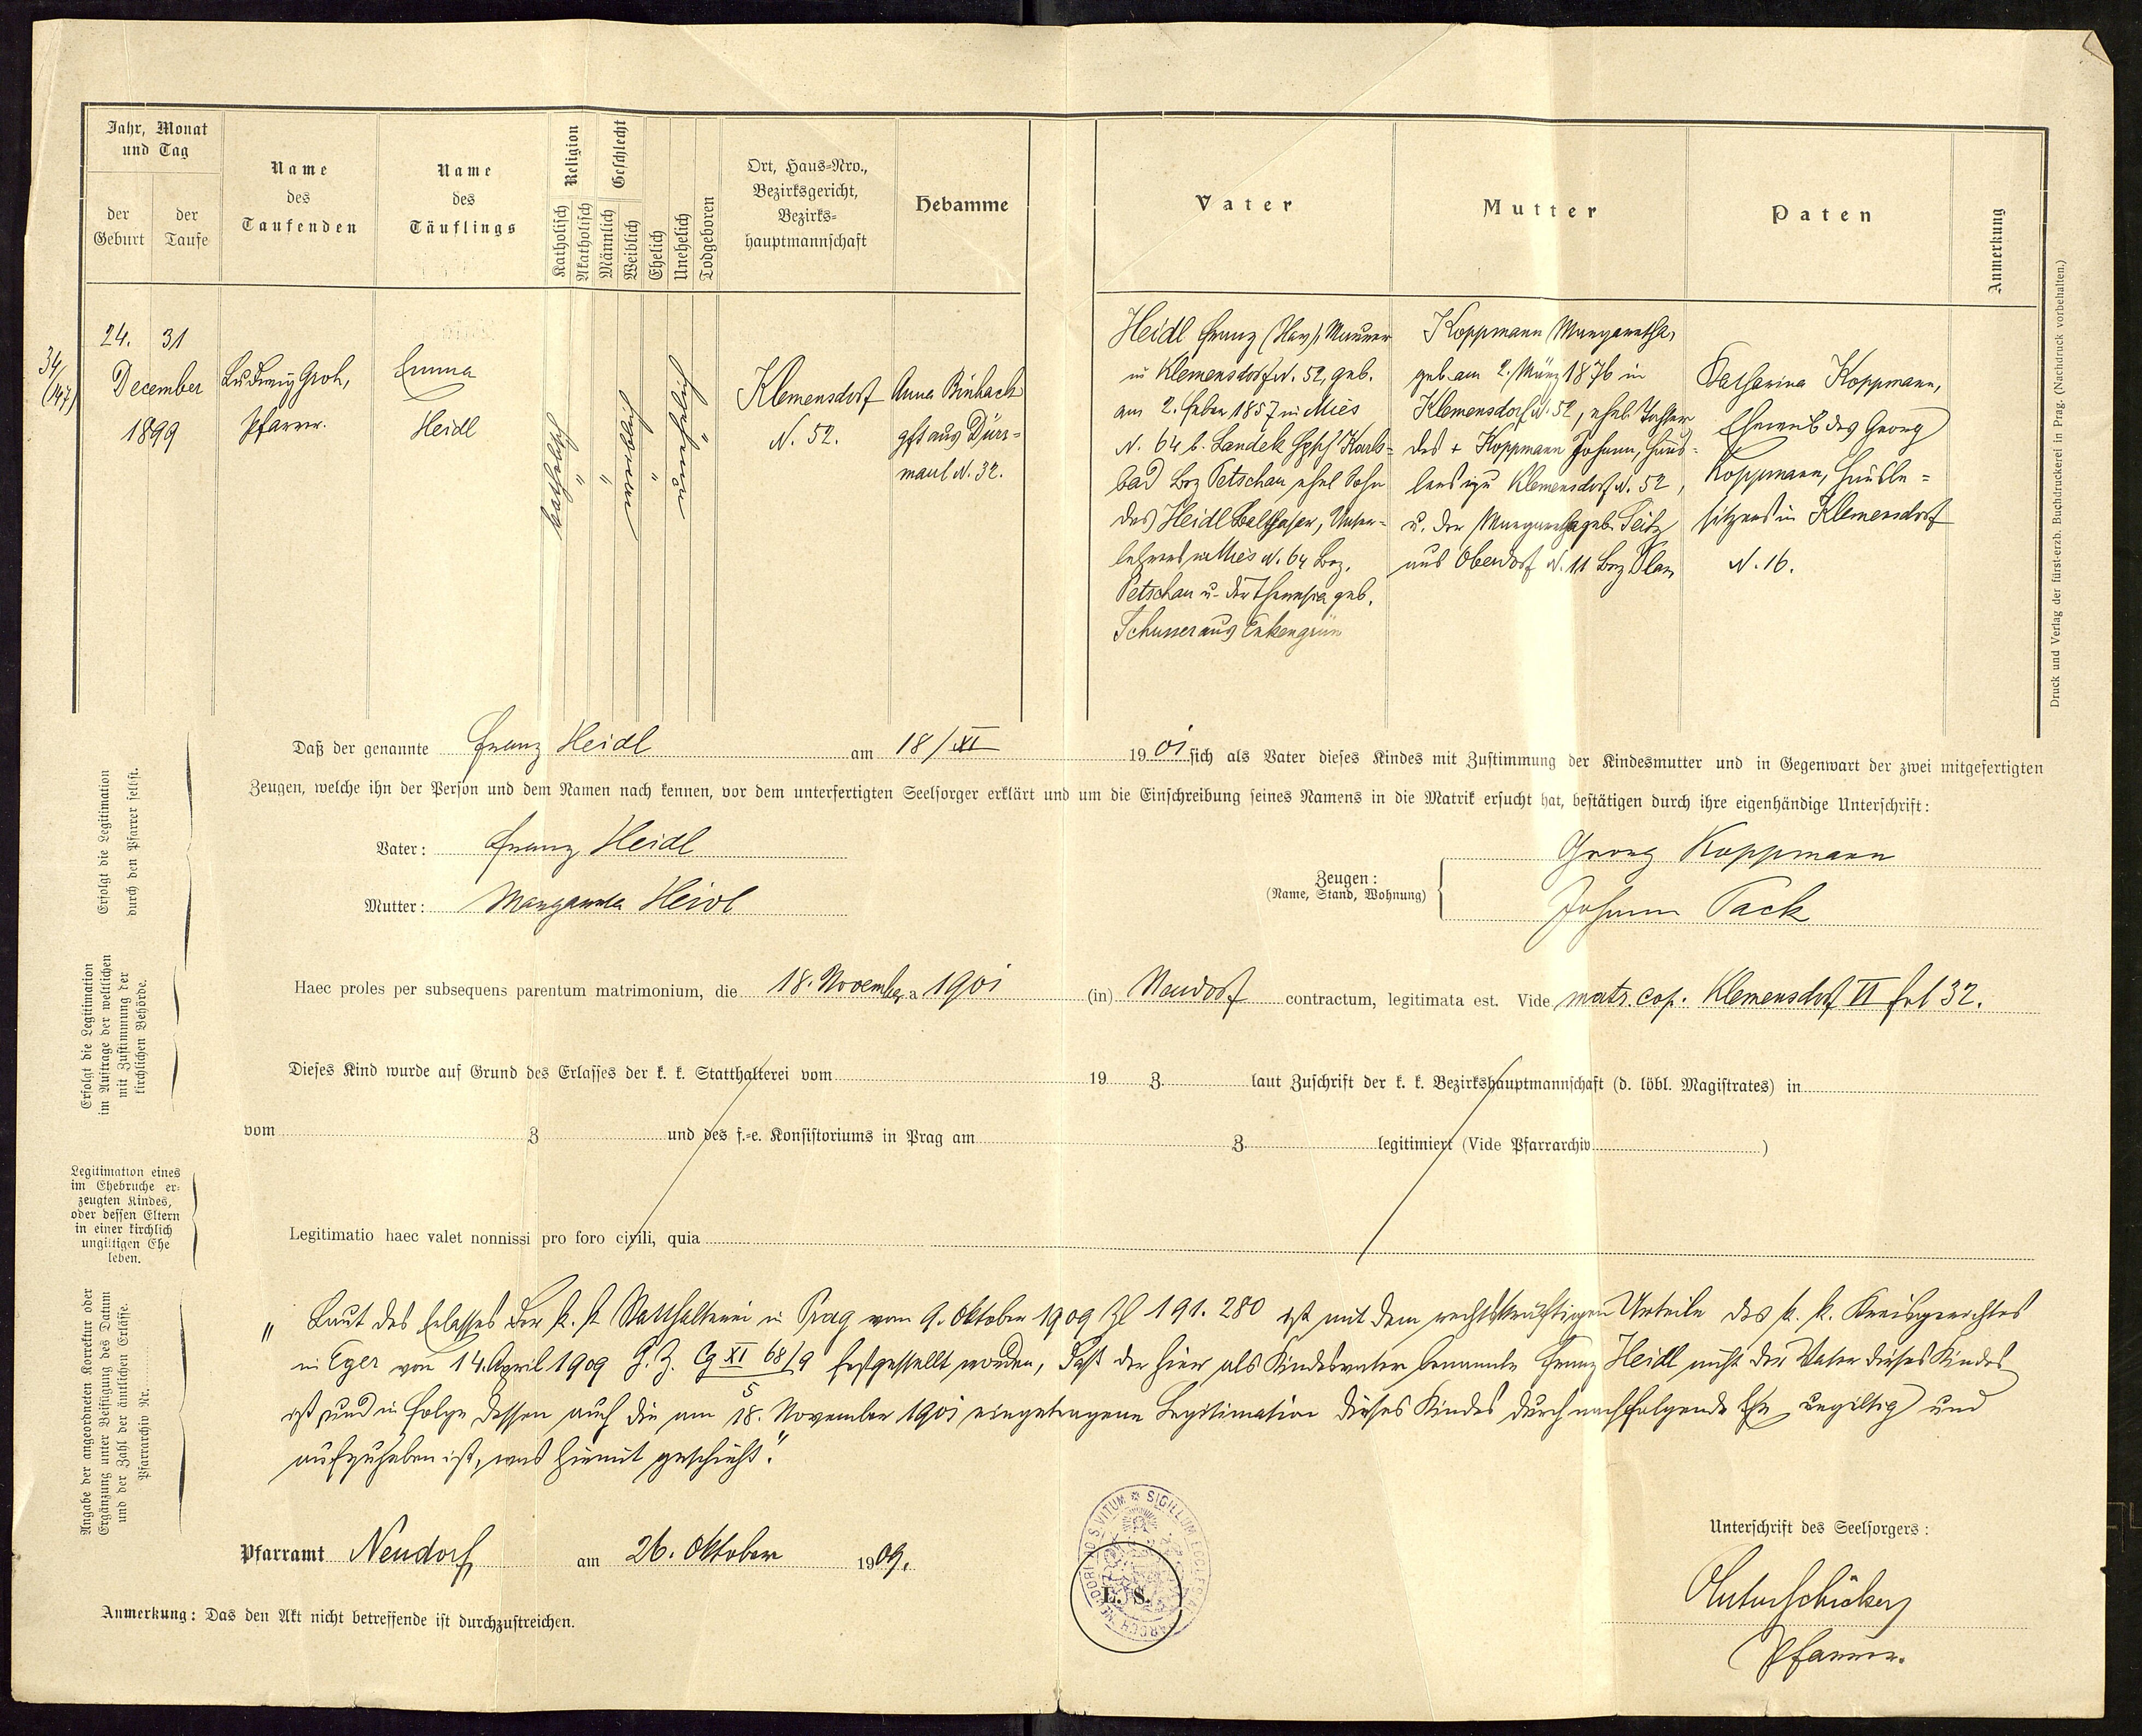 Jahr, Monat
und Tag
der
Geburt
der
Taufe
Name
des
Taufenden
Name
des
Täuflings
Religion
Katholisch
Akatholisch
Geschlecht
Männlich
Weiblich
Ehelich
Unehelich
Todgeboren
Ort, Haus-Nro.,
Bezirksgericht,
Bezirks-
hauptmannschaft
Hebamme
Vater
Mutter
Paten
Anmerkung
34/
(147)
24. 31
December
1899
Ludwig Groh,
Pfarrer.
Emma
Heidl
katholisch
"
"
"
Klemensdorf
N. 52.
Anna
gft aus Dürr=
maul N. 32.
Heidl Franz Maurer
in Klemensdorf N. 52, geb.
am 2. Feber 1857 in Miés
N. 64 b. Landek Karls=
bad Bez Petschau ehel Sohn
des Heidl Balthasar,
in Miés N. 64 Bez.
Petschau u. der Theresia geb.
Schusser aus Enkengrün
Koppmann Margaretha,
geb. am 2. März 1876 in
Klemensdorf N. 52, ehel. Tochter
des + Koppmann Johann, Häus=
lers zu Klemensdorf N. 52,
u. der Margaretha geb. Seitz
aus Oberdorf N. 11 Bez Plan
Katharina Koppmann,
Eheweib des Georg
Koppmann, Hausbe=
sitzers in Klemensdorf
N. 16.
Druck und Verlag der fürst-erzb. Buchdruckerei in Prag. (Nachdruck vorbehalten.)
Daß der genannte Franz Heidl am 18/XI 1901 sich als Vater dieses Kindes mit Zustimmung der Kindesmutter und in Gegenwart der zwei mitgefertigten
Zeugen, welche ihn der Person und dem Namen nach kennen, vor dem unterfertigten Seelsorger erklärt und um die Einschreibung seines Namens in die Matrik ersucht hat, bestätigen durch ihre eigenhändige Unterschrift:
Erfolgt die Legitimation
durch den Pfarrer selbst.
Vater: Franz Heidl
Mutter: Margareta Heidl
Zeugen:
(Name, Stand, Wohnung)
Georg Koppmann
Johann Tack
Erfolgt die Legitimation
im Auftrage der weltlichen
mit Zustimmung der
kirchlichen Behörde.
Haec proles per subsequens parentum matrimonium, die 18. November a 1901 (in) Neudorf contractum, legitimata est. Vide matr. cop. Klemensdorf VI fol 32.
Dieses Kind wurde auf Grund des Erlasses der k. k. Statthalterei vom 19 Z. laut Zuschrift der k. k. Bezirkshauptmannschaft (d. löbl. Magistrates) in
vom Z und des f.-e. Konsistoriums in Prag am Z. legitimiert (Vide Pfarrarchiv )
Legitimation eines
im Ehebruche er-
zeugten Kindes,
oder dessen Eltern
in einer kirchlich
ungiltigen Ehe
leben.
Legitimatio haec valet nonnissi pro foro civili, quia
Angabe der angeordneten Korrektur oder
Ergänzung unter Beifügung des Datum
und der Zahl der ämtlichen Erlässe.
Pfarrarchiv Nr.
„Laut des Erlasses der k. k. Statthalterei in Prag vom 9. Oktober 1909 Zl 191.280 ist mit dem rechtskräftigen Urteile des k. k. Kreisgerichtes
in Eger von 14. April 1909 G. Z. Cg XI 68/9 festgestellt worden, daß der hier als Kindesvater benannte Franz Heidl nicht der Vater dieses Kindes
5
ist und in Folge dessen auch die am 18. November 1901 eingetragene Legitimation dieses Kindes durch nachfolgende Ehe ungiltig und
aufzuheben ist, was hiemit geschieht."
Pfarramt Neudorf am 26. Oktober 1909.
L. S.
Unterschrift des Seelsorgers:
Pfarrer.
Anmerkung: Das den Akt nicht betreffende ist durchzustreichen.